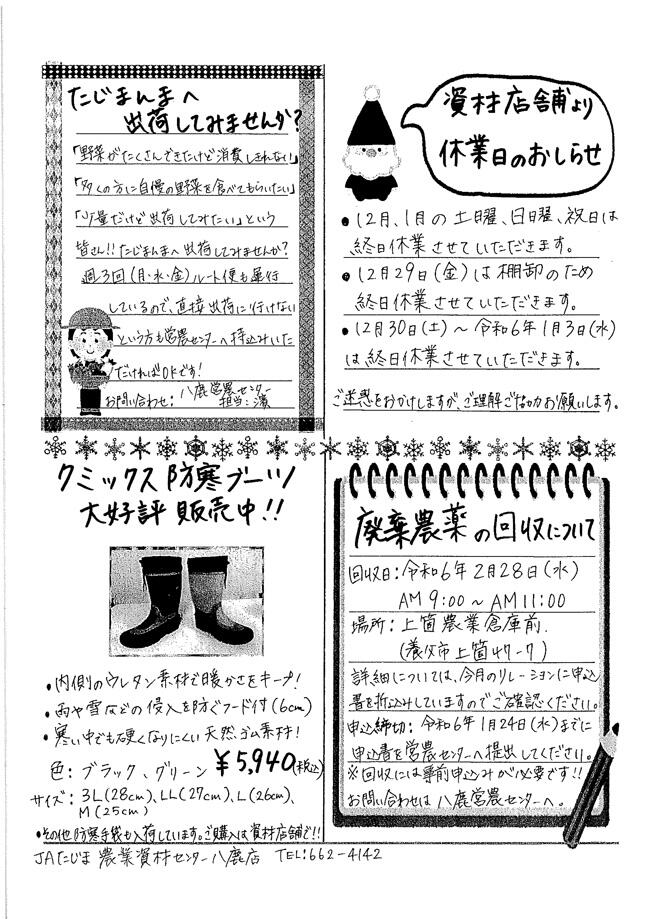 たじまんまへ
出荷してみませんか?
「野菜がたくさんできたけど消費しきれない」
「多くの方に自慢の野菜を食べてもらいたい」
「少量だけど出荷してみたい」という
皆さん!!たじまんまへ出荷してみませんか?
週3回(月・水・金)ルート便も運行
しているので、直接出荷に行けない
という方も営農センターへ持込みいた
だければOKです!
お問い合わせ:八鹿営農センター
担当:濱
資材店舗より
休業日のおしらせ
●12月、1月の土曜、日曜、祝日は
終日休業させていただきます。
●12月29日(金)は棚卸のため
終日休業させていただきます。
●12月30日(土)~令和6年1月3日(水)
は終日休業させていただきます。
ご迷惑をおかけしますが、ご理解ご協力お願いします。
クミックス防寒ブーツ
大好評販売中!!
・内側のウレタン素材で暖かさをキープ!
・雨や雪などの侵入を防ぐフード付(6cm)
・寒い中でも硬くなりにくい天然ゴム素材!
色:ブラック、グリーン ¥5,940(税込)
サイズ:3L(28cm)、LL(27cm)、L(26cm)、
M(25cm)
●その他防寒手袋も入荷しています。ご購入は資材店舗で!!
廃棄農薬の回収について
回収日:令和6年2月28日(水)
AM9:00~AM11:00
場所:上箇農業倉庫前
(養父市上箇47-7)
詳細については、今月のリレーションに申込
書を折込みしていますのでご確認ください。
申込締切:令和6年1月24日(水)までに
申込書を営農センターへ提出してください。
※回収には事前申込みが必要です!!
お問い合わせは八鹿営農センターへ。
JAたじま 農業資材センター八鹿店 TEL:662-4142